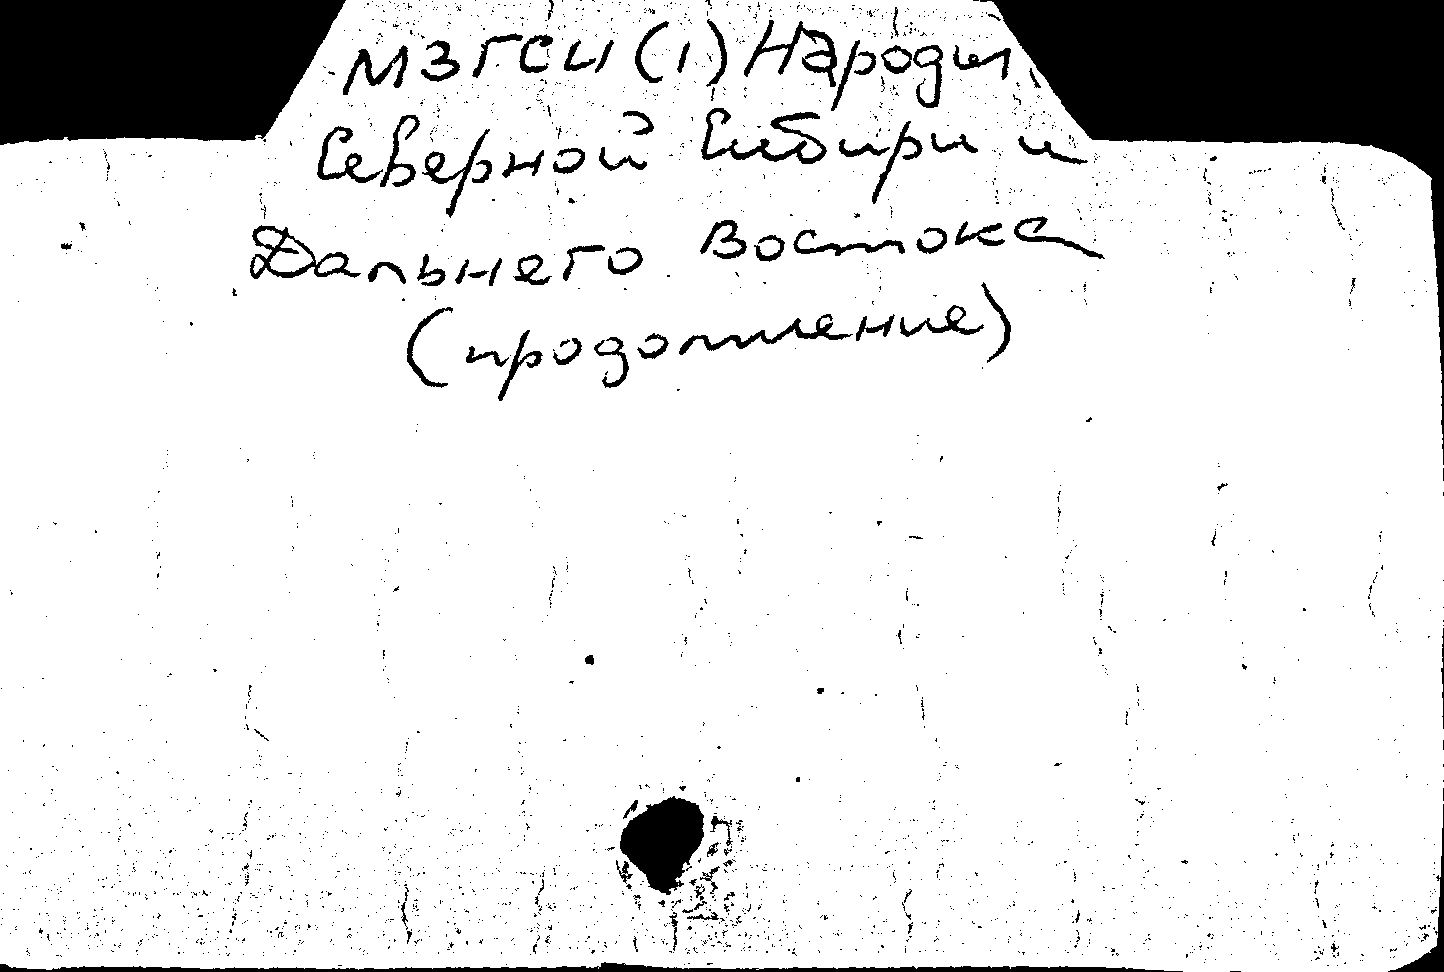 М3ГСИ(1) Народы
Северной Сибири и
Дальнего Востока
(продолжение)